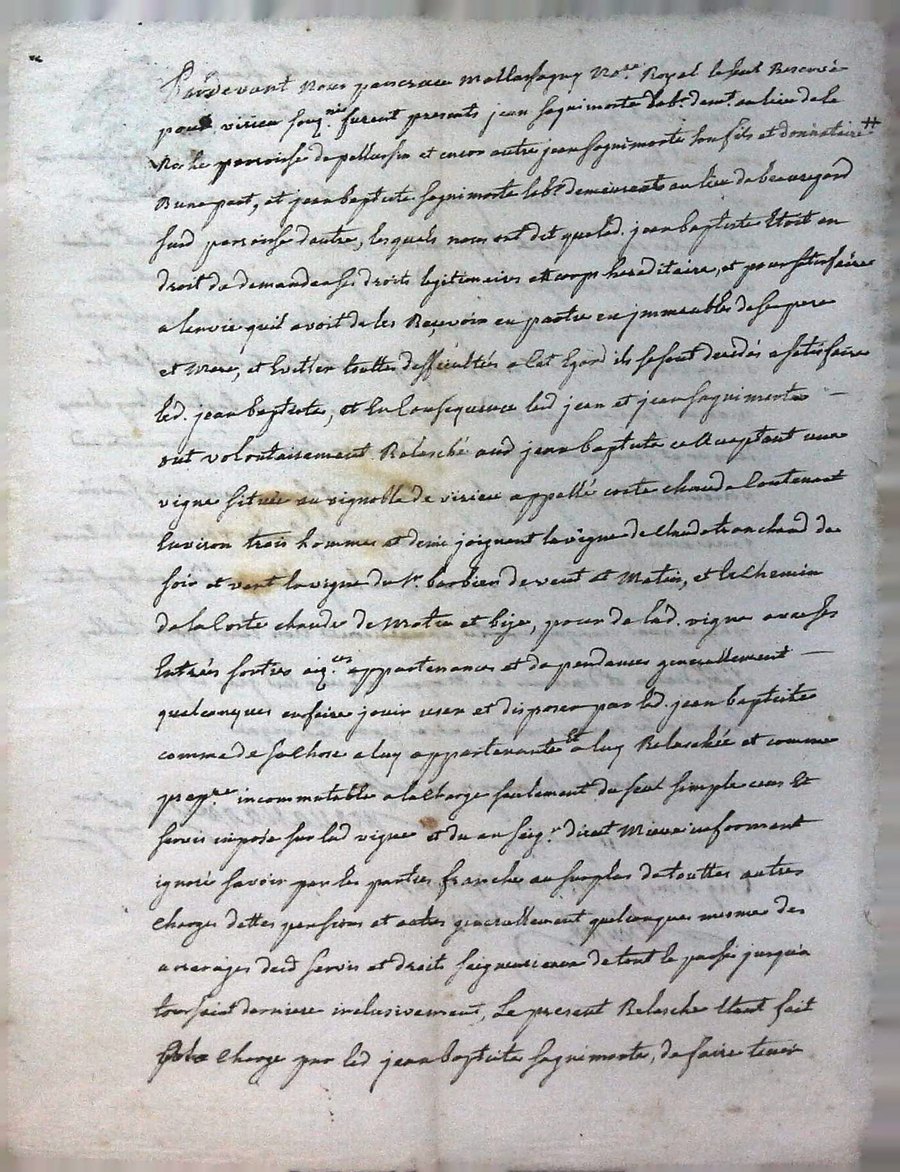 Pardevant Nous pancrace mallassagny No.re Royal le seul Reservé
pour virieu soug.né furent presents jean saguimorte lab.r demt. au lieu de la
Roche parroisse de pellussin et encor autre jean saguimorte son fils et donnataire #
D'une part, et jean baptiste saguimorte lab.r demeurant au lieu de beauregard
susd parroisse d'autre, lesquels nous ont dit que led. jean baptiste Etoit en
droit de demander ses droits legitimaires et corps hereditaire, et pour satisfaire
a lenvie quil avoit de les Recevoir en partie en jmmeubles de ses pere
et mere, et Eviter toutes diffiicultés a cet Egard ils se sont decidés a satisfaire
led. jean baptiste, et En Consequence led jean et jean saguimorte —
ont volontairement Relasché aud jean baptiste ce acceptant une
vigne située au vignoble de virieu appellé coste chaude Contenant
Environ trois hommes et demi joignant la vigne de Claude tranchand de
soir et vent la vigne du Sr. barbier de vent et Matin, et le Chemin
de la Coste chaude de Matin et bize, pour de lad. vigne avec ses
Entrées sorties aiz.ces appartenances et dependances generallement —
quelconques en faire jouir user et disposer par led. jean baptiste
comme de sa Chose a luy appartenante Et a luy Relaschée et comme
prop.re incommutable a la charge seulement du seul simple cens Et
servis imposé sur lad vigne et du au seig.r direct Mieux informant
ignoré savoir par les parties franche au surplus de touttes autres
Charges dettes pensions et autres generallement quelconques mesme des
arrerages desd servis et droit seigneuriaux de tout le passé jusqu'a
toussaint derniere inclusivement, Le present Relasche Etant fait
a la Charge par led jean baptiste saguimorte, de faire tenir